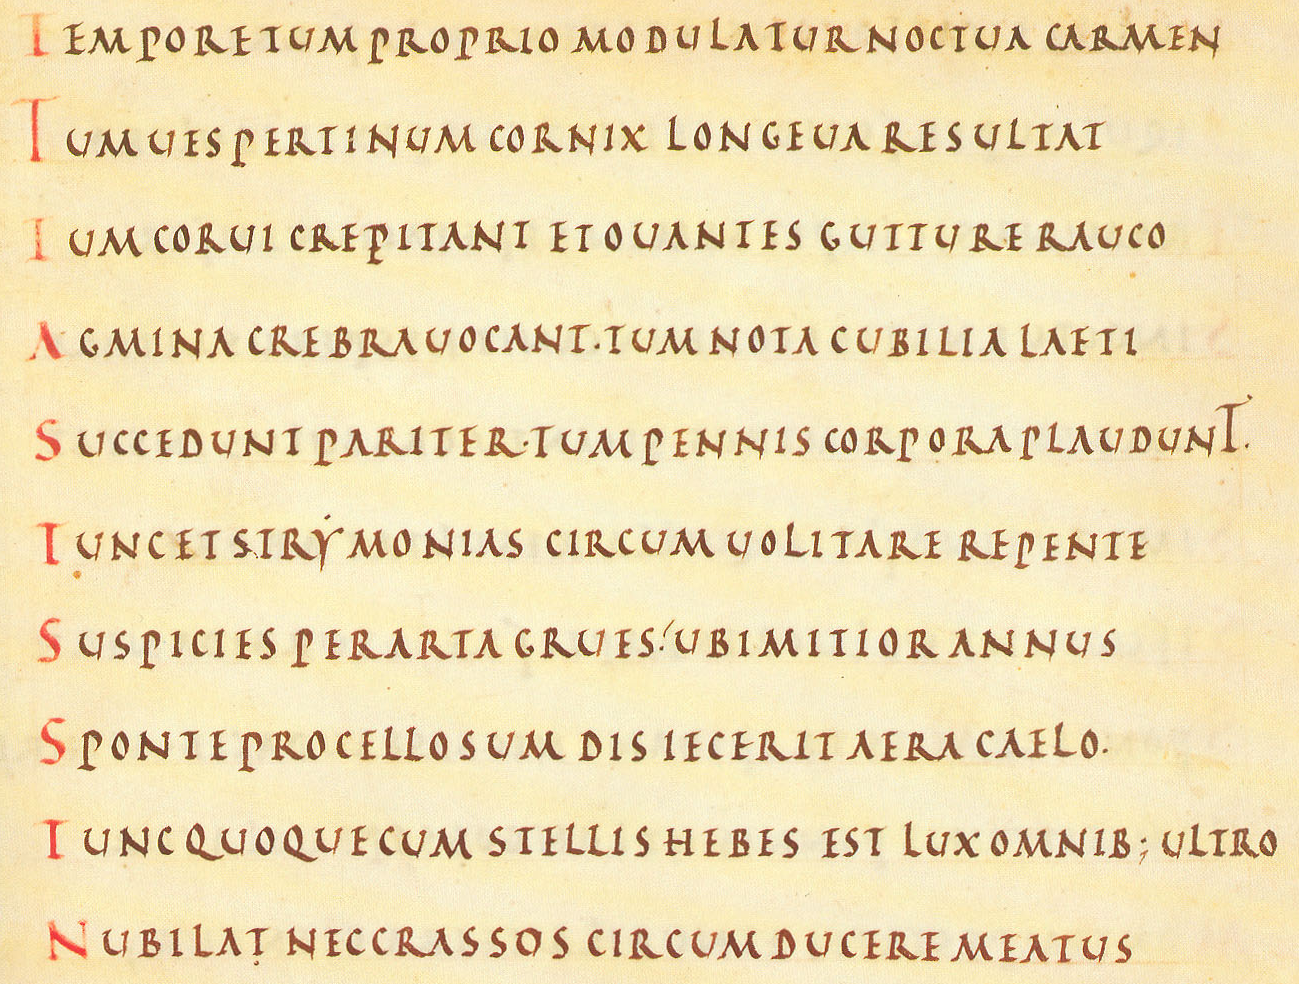 TEMPORE TUM PROPRIO MODULATUR NOCTUA CARMEN
TUM UESPERTINUM CORNIX LONGEUA RESULTAT
TUM CORUI CREPITANT ET OUANTES GUTTURE RAUCO
AGMINA CREBRA UOCANT. TUM NOTA CUBILIA LAETI
SUCCEDUNT PARITER. TUM PENNIS CORPORA PLAUDUNT.
TUNC ET STRẎMONIAS CIRCUM UOLITARE REPENTE
SUSPICIES PER ARTA GRUES. UBI MITIOR ANNUS
SPONTE PROCELLOSUM DISIECERIT AERA CAELO.
TUNC QUOQUE CUM STELLIS HEBES EST LUX OMNIB; ULTRO
NUBILAT NEC CRASSOS CIRCUMDUCERE MEATUS